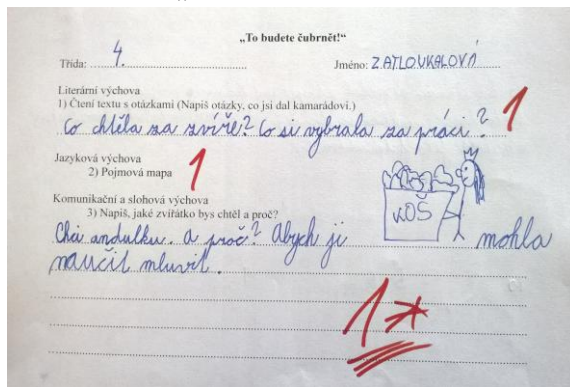 „To budete čubrnět!“
Třída: 4. Jméno: ZATLOUKALOVÁ
Literární výchova
1) Čtení textu s otázkami (Napiš otázky, co jsi dal kamarádovi.)
Co chtěla za zvíře? Co si vybrala za práci? 1
Jazyková výchova
2) Pojmová mapa 1
Komunikační a slohová výchova
3) Napiš, jaké zvířátko bys chtěl a proč?
KOŠ
Chci andulku. A proč? Abych ji mohla
naučit mluvit.
1*